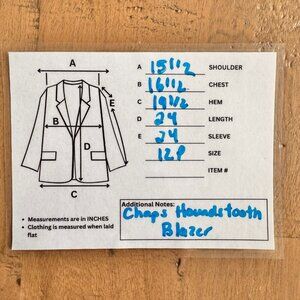 A
A 15 1/2 SHOULDER
B 16 1/2 CHEST
C 19 1/2 HEM
D 24 LENGTH
E 24 SLEEVE
12P SIZE
ITEM #
E
B
D
C
• Measurements are in INCHES
• Clothing is measured when laid
flat
Additional Notes:
Chaps Houndstooth
Blazer